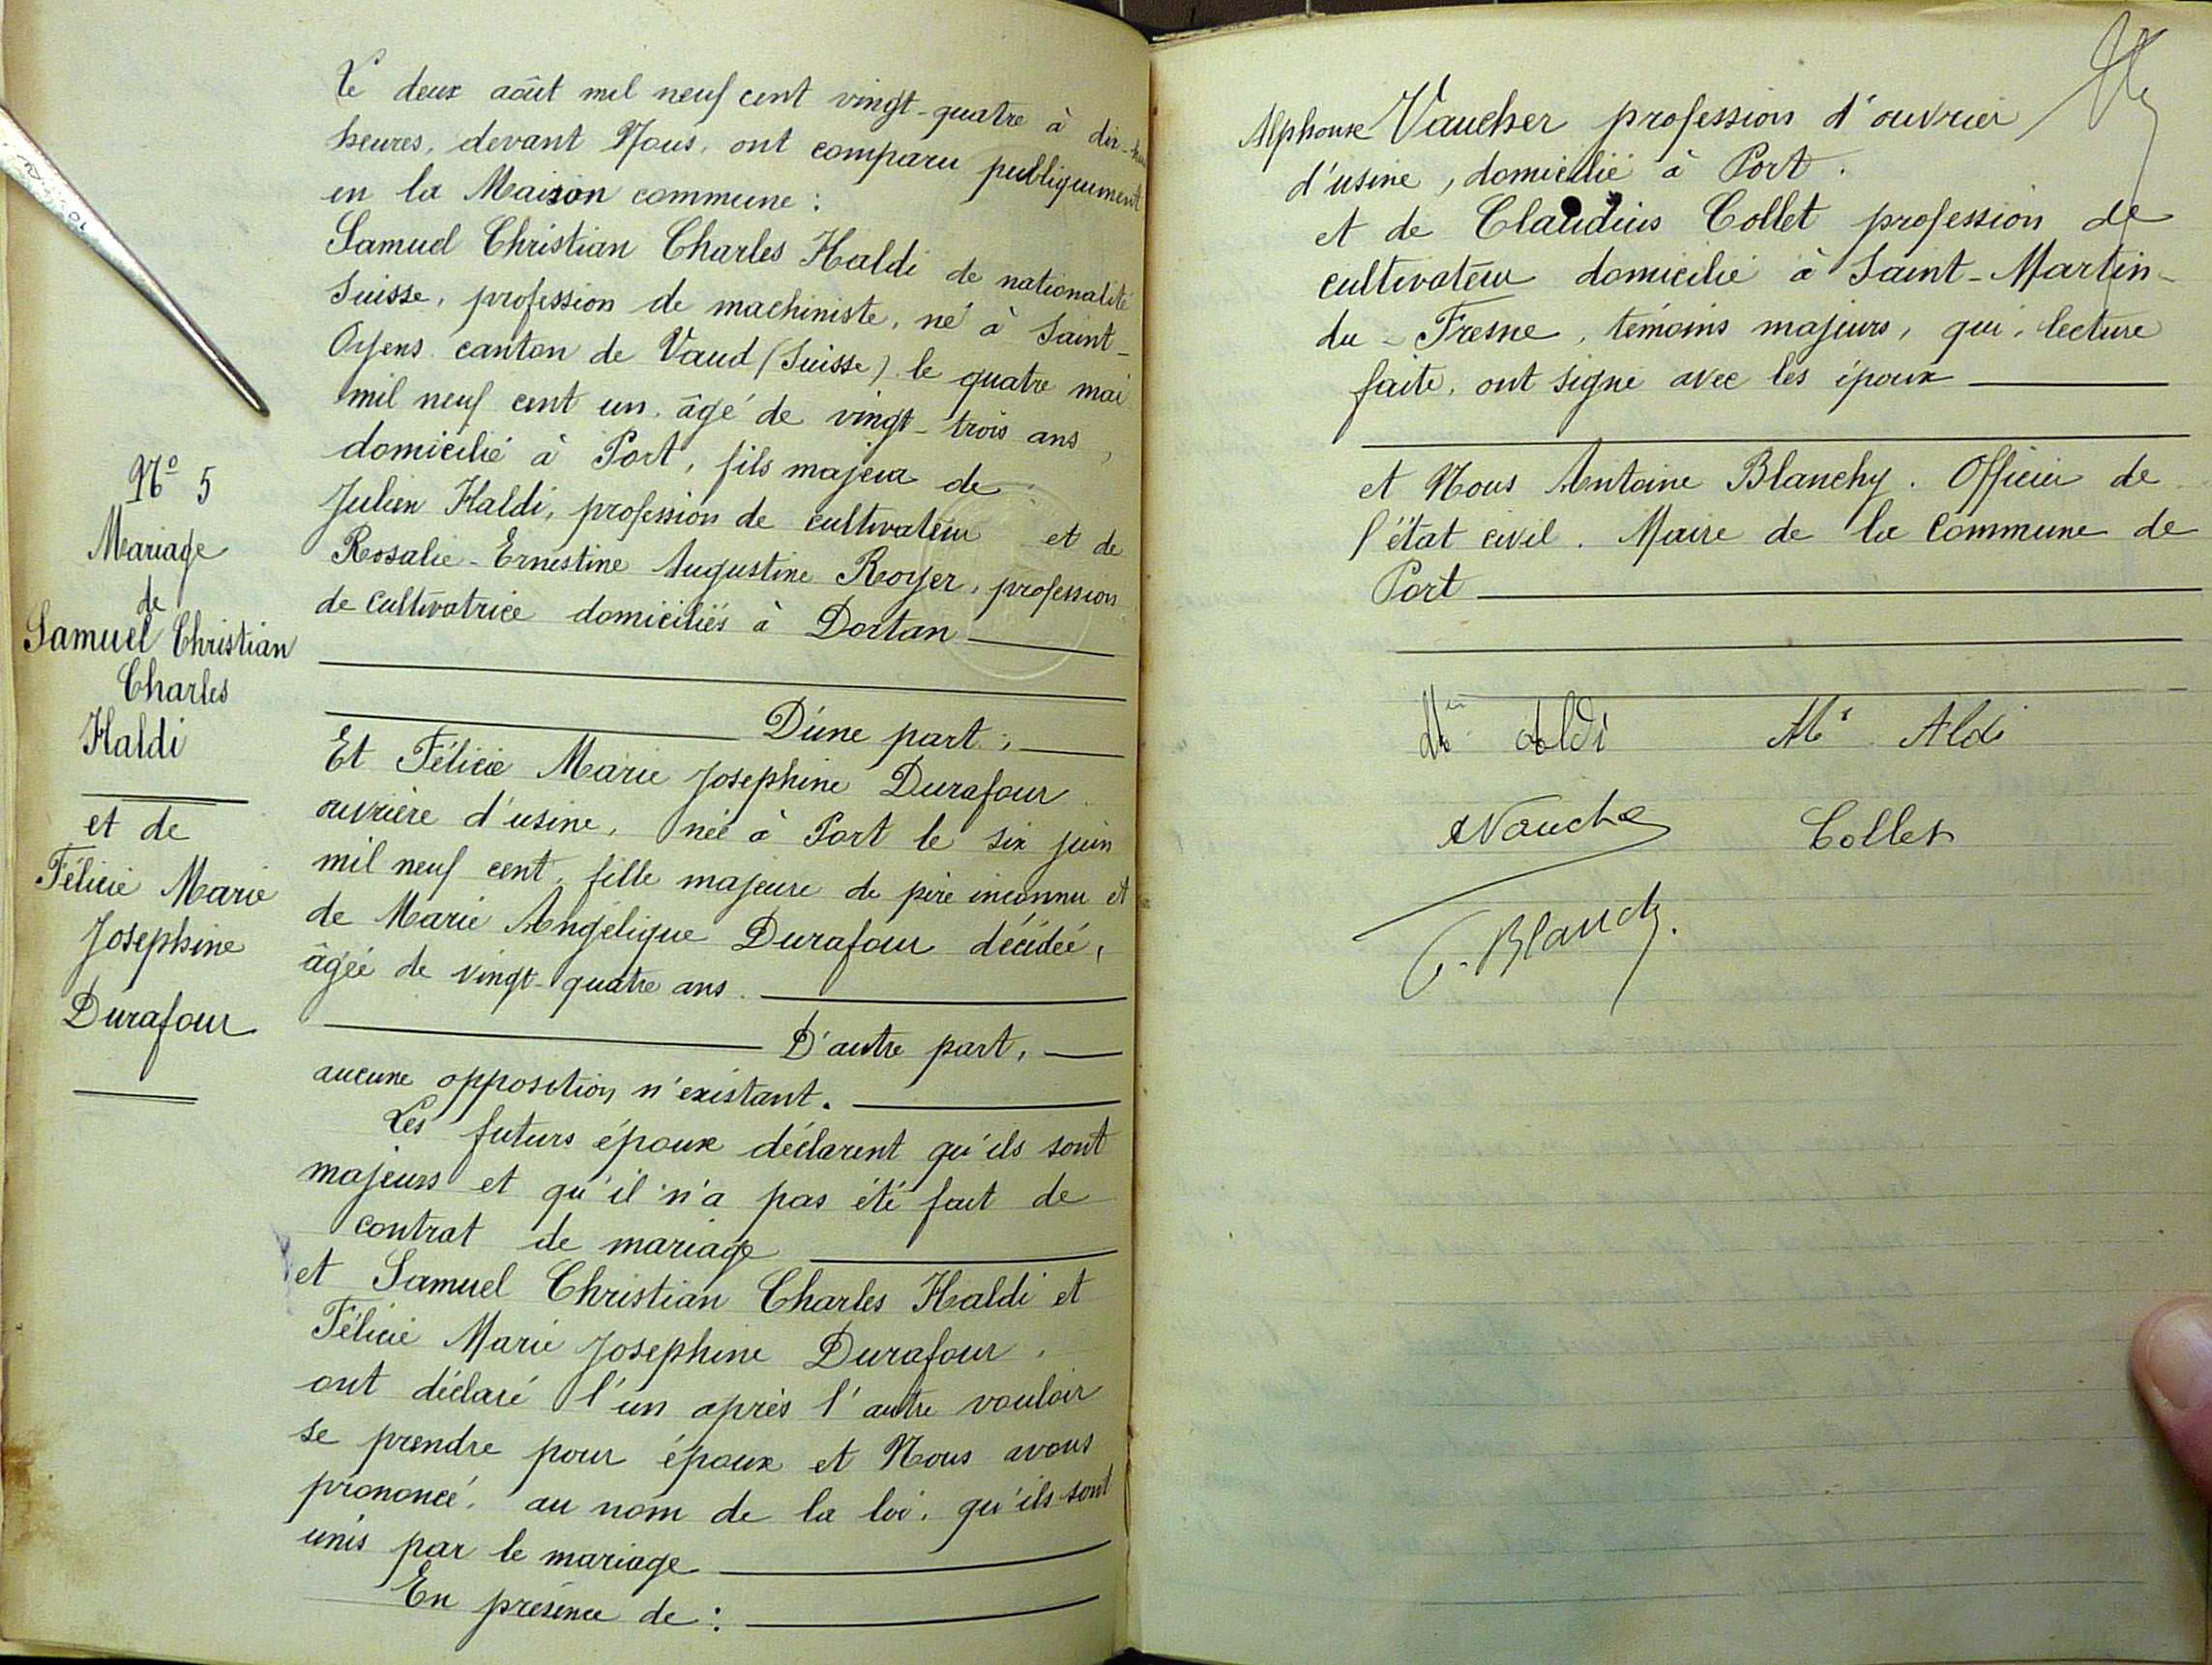 Le deux août mil neuf cent vingt-quatre à dix-huit
heures, devant Nous, ont comparu publiquement
en la Maison commune :
Samuel Christian Charles Haldi de nationalité
Suisse, profession de machiniste, né à Saint-
Oyens canton de Vaud (Suisse) le quatre mai
mil neuf cent un, âgé de vingt-trois ans,
domicilié à Port, fils majeur de
Julien Haldi, profession de cultivateur et de
Rosalie-Ernestine Augustine Royer, profession
de cultivatrice domiciliés à Dortan
D'une part,
Et Félicie Marie Josephine Durafour
ouvrière d'usine, née à Port le six juin
mil neuf cent, fille majeure de père inconnu et
de Marie Angélique Durafour décédeé,
âgée de vingt-quatre ans.
D'autre part,
aucune opposition n'existant.
Les futurs époux déclarent qu'ils sont
majeurs et qu'il n'a pas été fait de
contrat de mariage
et Samuel Christian Charles Haldi et
Félicie Marie Josephine Durafour,
ont déclaré l'un après l'autre vouloir
se prendre pour époux et Nous avons
prononcé, au nom de la loi, qu'ils sont
unis par le mariage
En présence de :
Nº 5
Mariage
de
Samuel Christian
Charles
Haldi
et de
Félicie Marie
Josephine
Durafour
Alphonse Vaucher profession d'ouvrier
d'usine, domicilié à Port.
et de Claudius Collet profession de
cultivateur domicilié à Saint-Martin-
du-Fresne, témoins majeurs, qui, lecture
faite, ont signé avec les époux
et Nous Antoine Blanchy. Officier de
l'état civil. Maire de la Commune de
Port
Aldi Aldi
Collet
Blanchy.